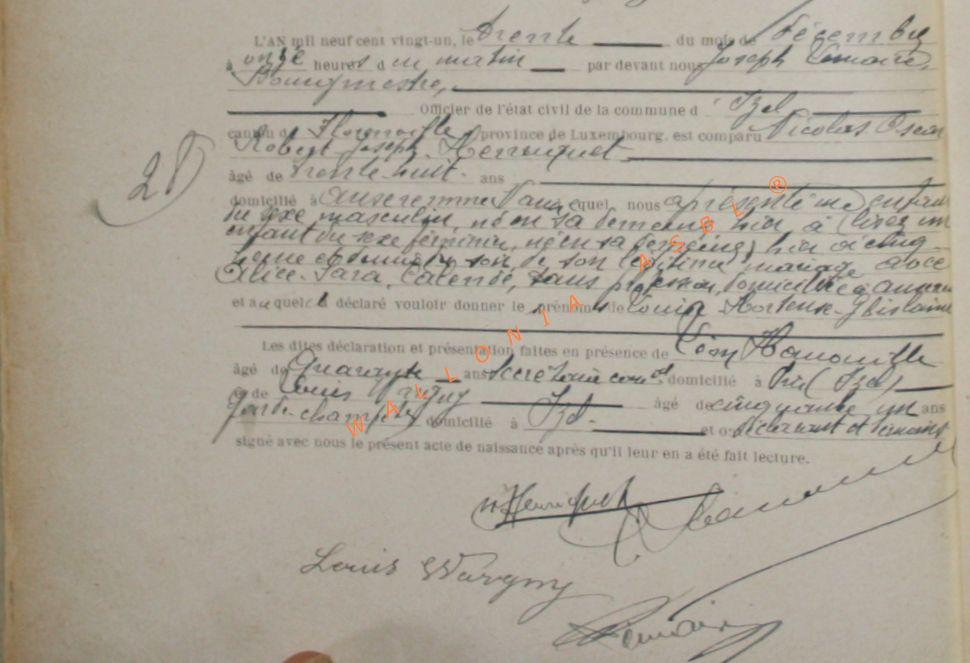 L'AN mil neuf cent vingt-un, le trente du mois de décembre
à onze heures du matin par devant nous Joseph Lemaire,
Bourgmestre,
Officier de l'état civil de la commune d' Izel
canton de Florenville, province de Luxembourg, est comparu Nicolas Oscar
Robert Joseph
âgé de trente huit ans
domicilié à lequel nous a présenté un enfant
du sexe masculin, né en sa demeure hier à (lisez un
enfant du sexe féminin, né en sa demeure) hier à cinq
heures du soir de son légitime mariage avec
Alice Sara sans profession, domiciliée à
et auquel a déclaré vouloir donner le prénoms de Hortense Ghislaine
Les dites déclaration et présentation faites en présence de Léon Hanouille
âgé de quarante ans secrétaire coml domicilié à (Izel)
et de Louis âgé de cinquante un ans
garde-champêtre domicilié à Izel. et ont déclarant et témoins
signé avec nous le présent acte de naissance après qu'il leur en a été fait lecture.
28
Louis Wargny
Lemaire
WALLONIA ASBL ®